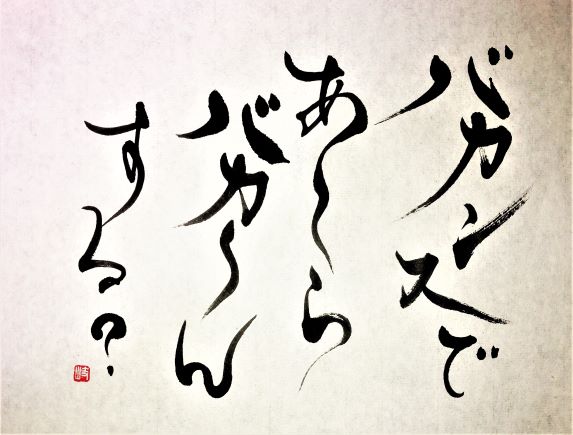 バカンスで
あ〜ら
バカ〜ん
する？